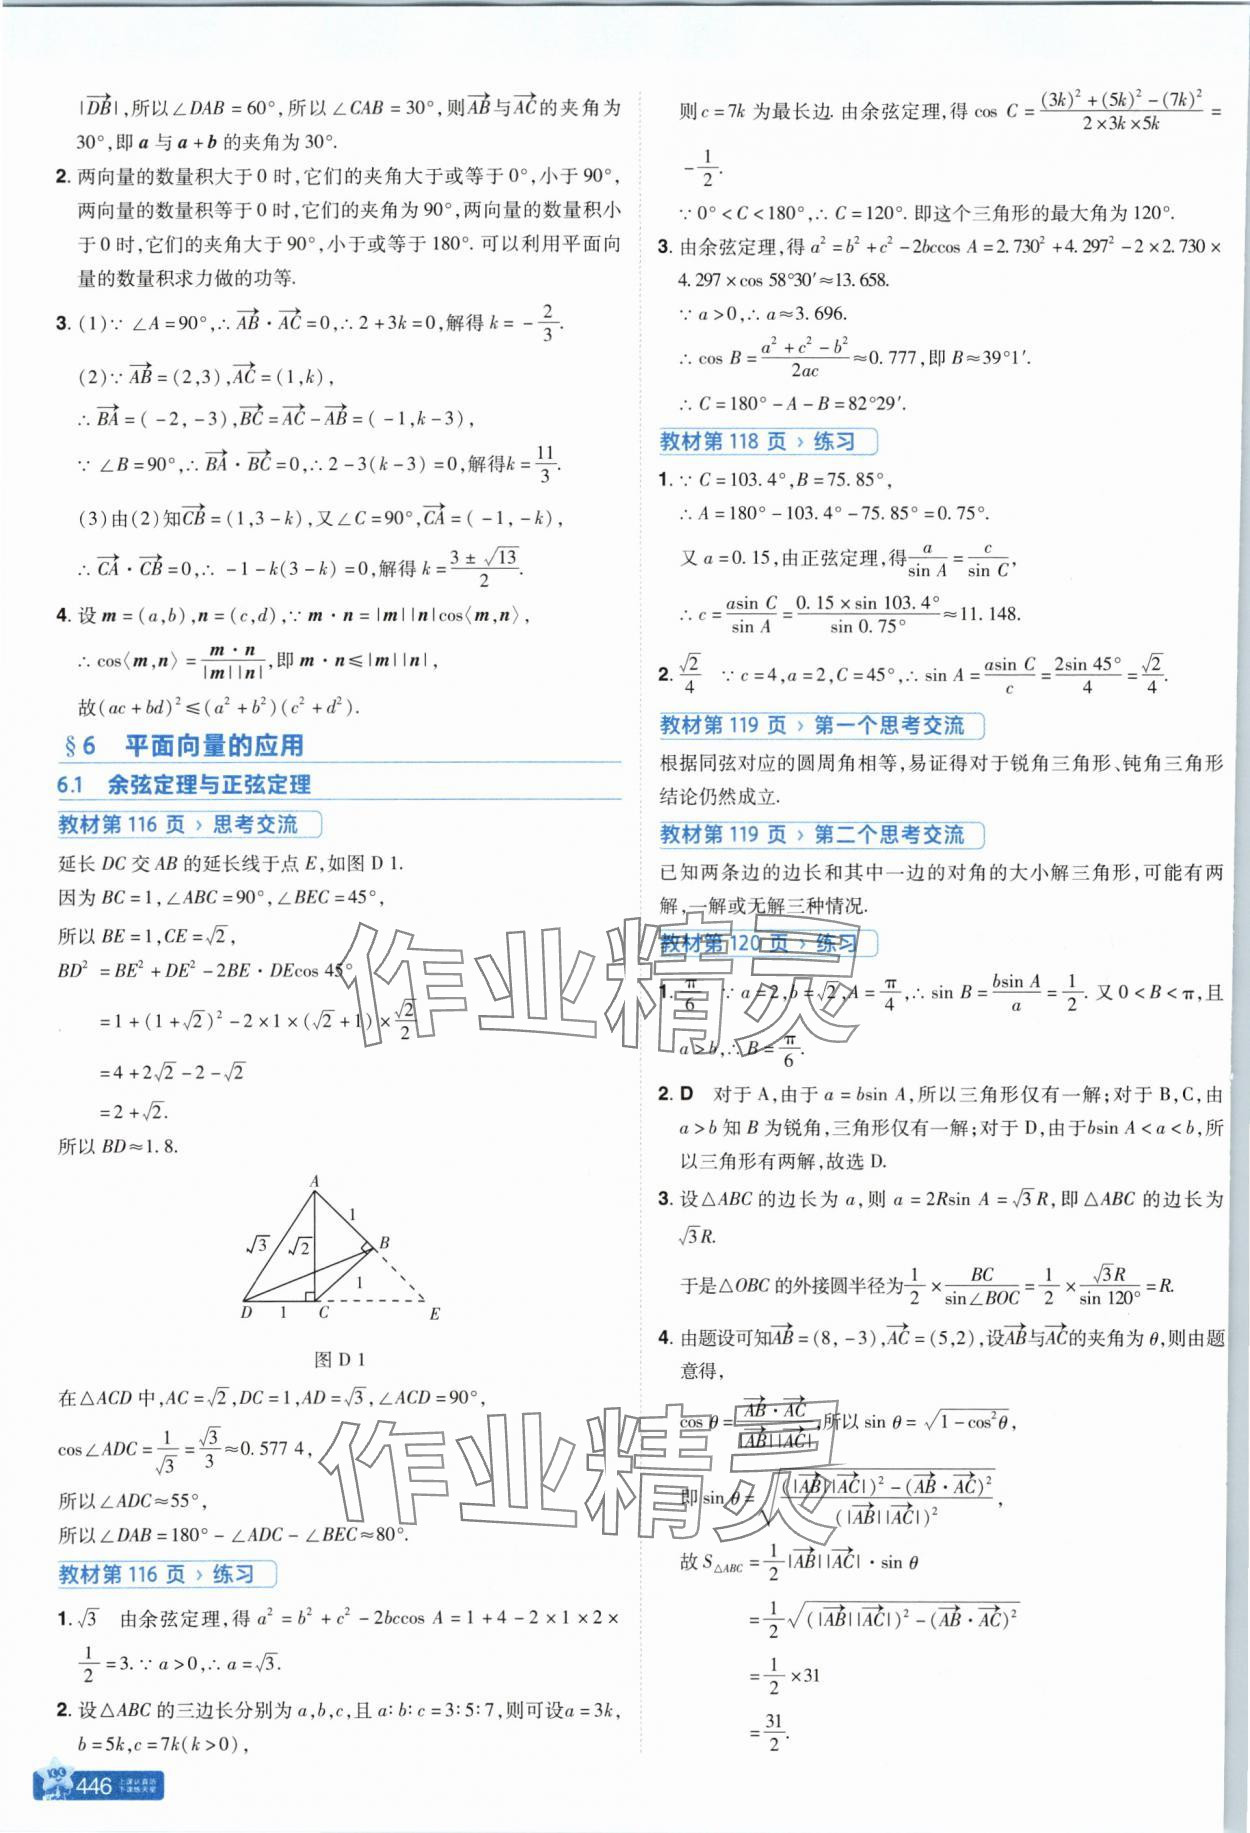 |DB|,所以∠DAB=60°,所以∠CAB=30°,则AB与AC的夹角为
30°,即a与a+b的夹角为30°.
2. 两向量的数量积大于0时,它们的夹角大于或等于0°,小于90°,
两向量的数量积等于0时,它们的夹角为90°,两向量的数量积小
于0时,它们的夹角大于90°,小于或等于180°.可以利用平面向
量的数量积求力做的功等.
3. (1)∵∠A=90°,∴AB·AC=0,∴2+3k=0,解得k=-2/3.
(2)∵AB=(2,3),AC=(1,k),
∴BA=(-2,-3),BC=AC-AB=(-1,k-3),
∵∠B=90°,∴BA·BC=0,∴2-3(k-3)=0,解得k=11/3.
(3)由(2)知CB=(1,3-k),又∠C=90°,CA=(-1,-k),
∴CA·CB=0,∴-1-k(3-k)=0,解得k=(3±√13)/2.
4. 设m=(a,b),n=(c,d),∵m·n=|m||n|cos⟨m,n⟩,
∴cos⟨m,n⟩=m·n/(|m||n|),即m·n≤|m||n|,
故(ac+bd)²≤(a²+b²)(c²+d²).
§6 平面向量的应用
6.1 余弦定理与正弦定理
教材第116页›思考交流
延长DC交AB的延长线于点E,如图D1.
因为BC=1,∠ABC=90°,∠BEC=45°,
所以BE=1,CE=√2,
BD²=BE²+DE²-2BE·DEcos 45°
=1+(1+√2)²-2×1×(√2+1)×√2/2
=4+2√2-2-√2
=2+√2.
所以BD≈1.8.
A
√3 √2 1
B
1
D 1 C E
图D1
在△ACD中,AC=√2,DC=1,AD=√3,∠ACD=90°,
cos∠ADC=1/√3=√3/3≈0.577 4,
所以∠ADC≈55°,
所以∠DAB=180°-∠ADC-∠BEC≈80°.
教材第116页›练习
1. √3 由余弦定理,得a²=b²+c²-2bccos A=1+4-2×1×2×
1/2=3.∵a>0,∴a=√3.
2. 设△ABC的三边长分别为a,b,c,且a∶b∶c=3∶5∶7,则可设a=3k,
b=5k,c=7k(k>0),
446 上课认真听 下课练天星
则c=7k为最长边.由余弦定理,得cos C=((3k)²+(5k)²-(7k)²)/(2×3k×5k)=
-1/2.
∵0°<C<180°,∴C=120°.即这个三角形的最大角为120°.
3. 由余弦定理,得a²=b²+c²-2bccos A=2.730²+4.297²-2×2.730×
4.297×cos 58°30′≈13.658.
∵a>0,∴a≈3.696.
∴cos B=(a²+c²-b²)/2ac≈0.777,即B≈39°1′.
∴C=180°-A-B=82°29′.
教材第118页›练习
1. ∵C=103.4°,B=75.85°,
∴A=180°-103.4°-75.85°=0.75°.
又a=0.15,由正弦定理,得a/sin A=c/sin C,
∴c=asin C/sin A=0.15×sin 103.4°/sin 0.75°≈11.148.
2. √2/4 ∵c=4,a=2,C=45°,∴sin A=asin C/c=2sin 45°/4=√2/4.
教材第119页›第一个思考交流
根据同弦对应的圆周角相等,易证得对于锐角三角形、钝角三角形
结论仍然成立.
教材第119页›第二个思考交流
已知两条边的边长和其中一边的对角的大小解三角形,可能有两
解,一解或无解三种情况.
教材第120页›练习
1. π/6 ∵a=2,b=√2,A=π/4,∴sin B=bsin A/a=1/2.又0<B<π,且
a>b,∴B=π/6.
2. D 对于A,由于a=bsin A,所以三角形仅有一解;对于B,C,由
a>b知B为锐角,三角形仅有一解;对于D,由于bsin A<a<b,所
以三角形有两解,故选D.
3. 设△ABC的边长为a,则a=2Rsin A=√3R,即△ABC的边长为
√3R.
于是△OBC的外接圆半径为1/2×BC/sin∠BOC=1/2×√3R/sin 120°=R.
4. 由题设可知AB=(8,-3),AC=(5,2),设AB与AC的夹角为θ,则由题
意得,
cos θ=AB·AC/(|AB||AC|),所以sin θ=√(1-cos²θ),
即sin θ=√(((|AB||AC|)²-(AB·AC)²)/(|AB||AC|)²),
故S△ABC=1/2|AB||AC|·sin θ
=1/2√((|AB||AC|)²-(AB·AC)²)
=1/2×31
=31/2.
作业精灵
作业精灵